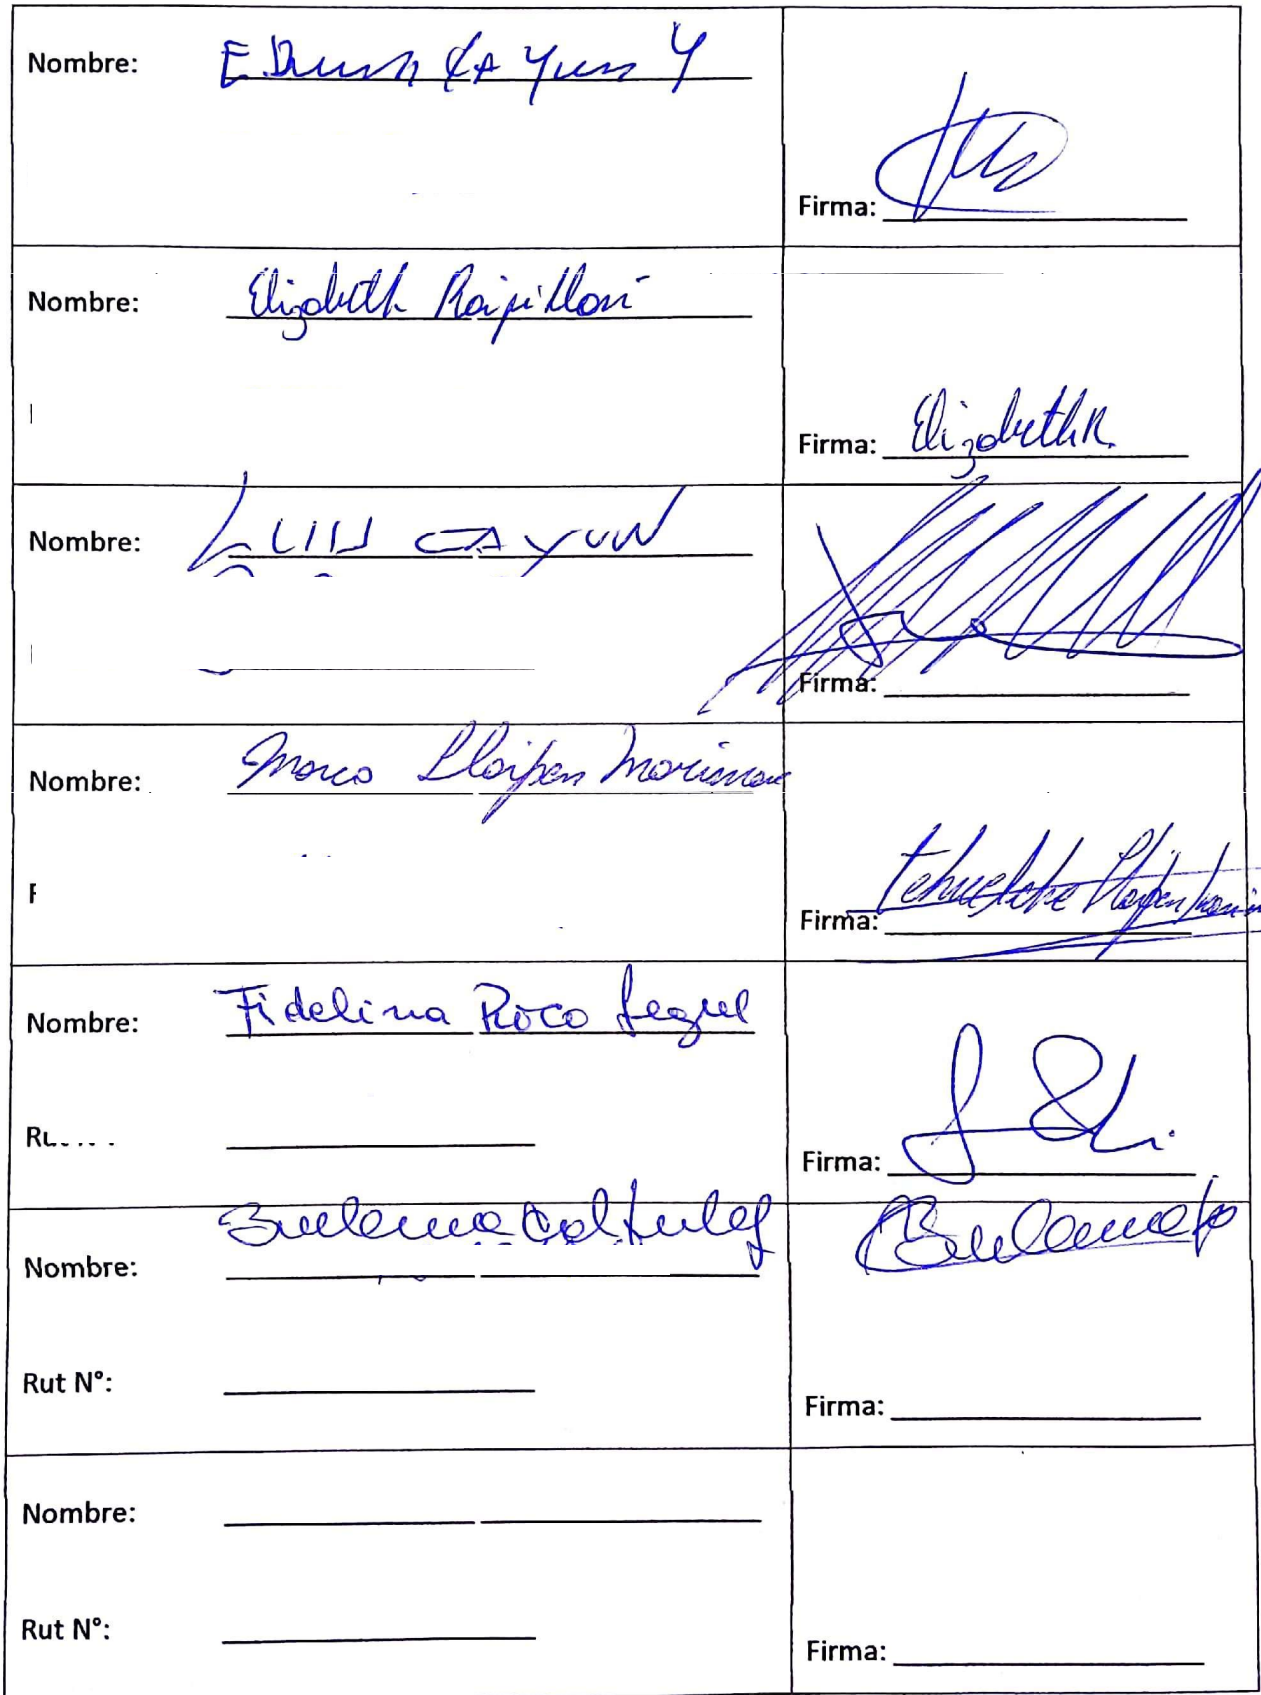 Nombre: E. Cayun Y
Firma:
Nombre: Elizabeth Raipillan
Firma: Elizabeth R.
Nombre: Luis CAYUN
Firma:
Nombre: Marco Llaipen
Firma: Tehuelche Llaipen
Nombre: Fidelina Roco Legue
Firma:
Nombre: Zulema
Rut N°:
Firma: Zulema
Nombre:
Rut N°:
Firma: